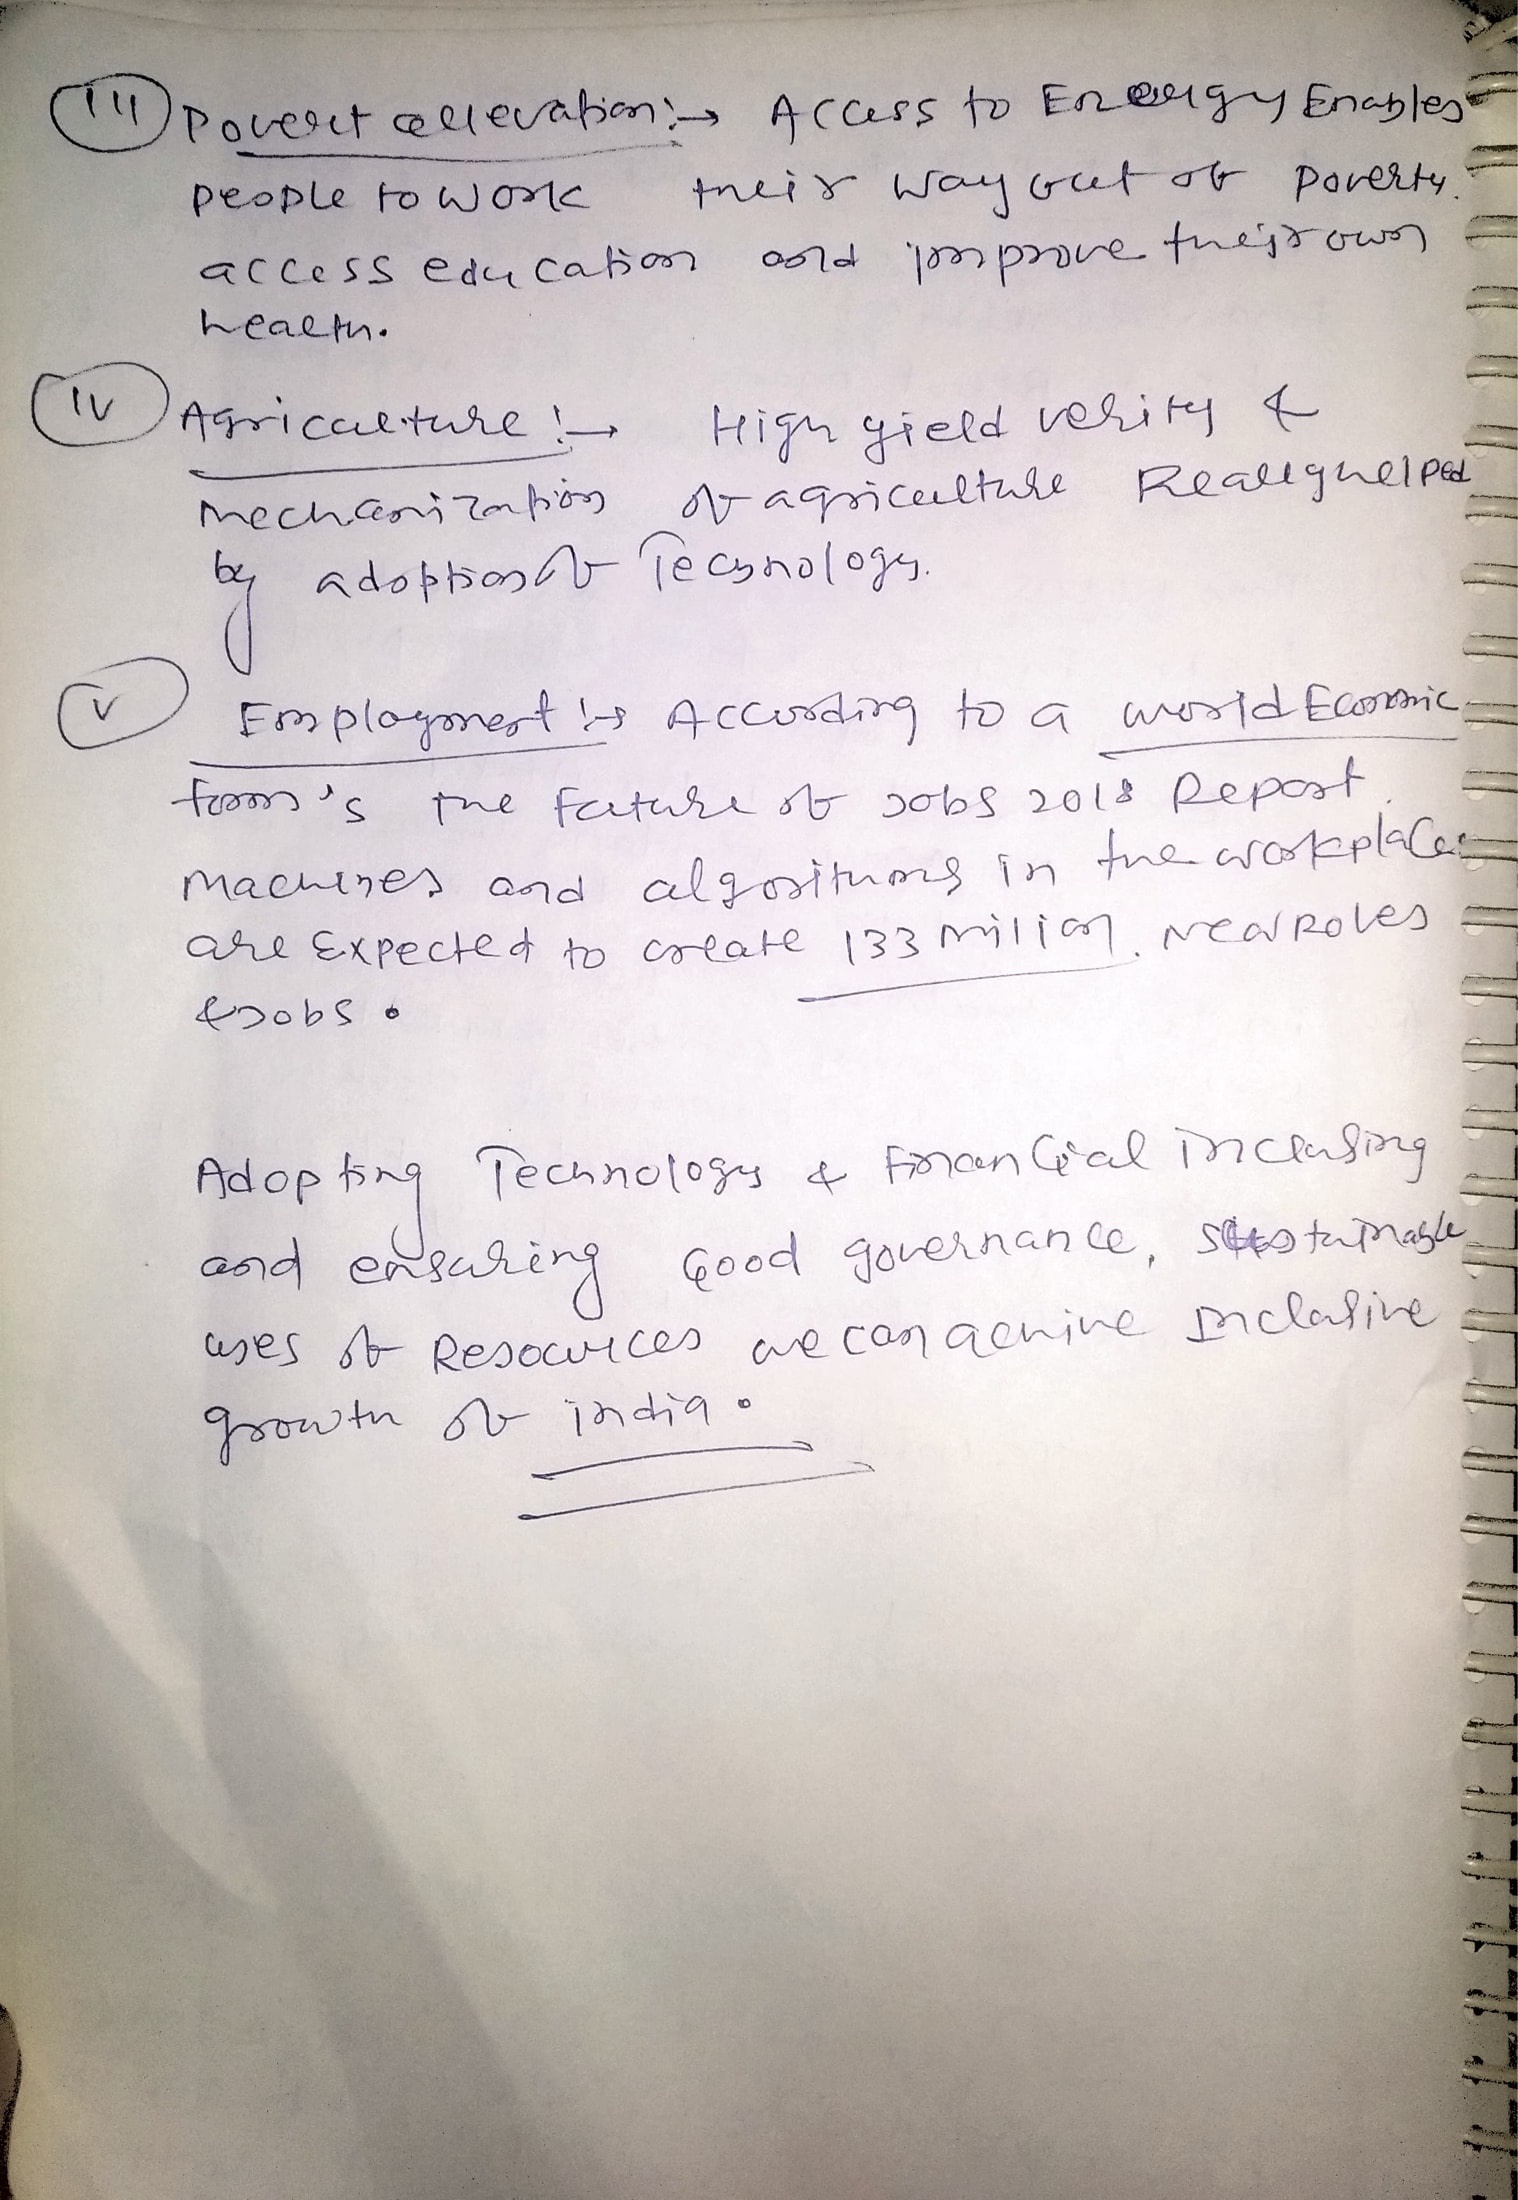 III Povert allevation :→ Access to Energy Enables
people to work their way out of poverty.
access education and improve their own
health.
IV Agriculture :→ High yield verity &
mechanization of agriculture Really helped
by adoption of Technology.
V Employment :→ According to a world Economic
form's The Future of Jobs 2018 Report.
Machines and algorithms in the workplace
are Expected to create 133 million New Roles
& Jobs.
Adopting Technology & Financial inclusing
and ensuring Good governance, sustainable
uses of Resources we can achive Inclusive
growth of india.